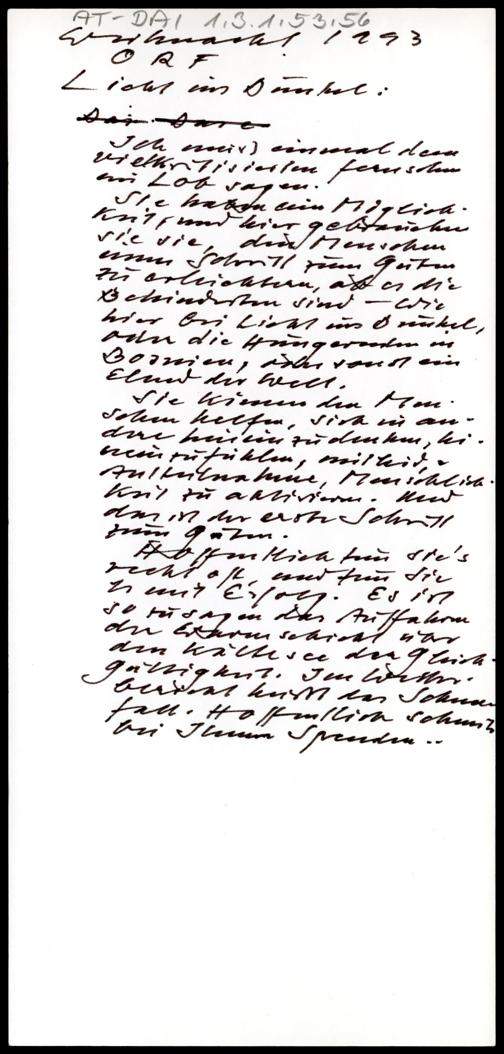 AT-DAI 1.3.1.53.56
Weihnacht 1993
ORF
Licht ins Dunkel:
Ich muss einmal dem
vielkritisierten Fernsehen
ein Lob sagen.
Sie haben ein Möglich-
keit, und hier gebrauchen
sie sie, den Menschen
einen Schritt zum Guten
zu erleichtern, ob es die
Behinderten sind – wie
hier bei Licht ins Dunkel,
oder die Hungernden in
Bosnien, oder sonst ein
Elend der Welt.
Sie können den Men-
schen helfen, sich in an-
dere hineinzudenken, hi-
neinzufühlen, mitleid,
Anteilnahme, Menschlich-
keit zu aktivieren. Und
das ist der erste Schritt
zum Guten.
Hoffentlich tun Sie's
recht oft, und tun Sie
es mit Erfolg. Es ist
so zusagen das Auffahren
der Warmschicht über
den Kältesee der Gleich-
gültigkeit. Im Wetter-
bericht heisst das Schnee-
fall. Hoffentlich schneit's
bei Ihnen Spenden..